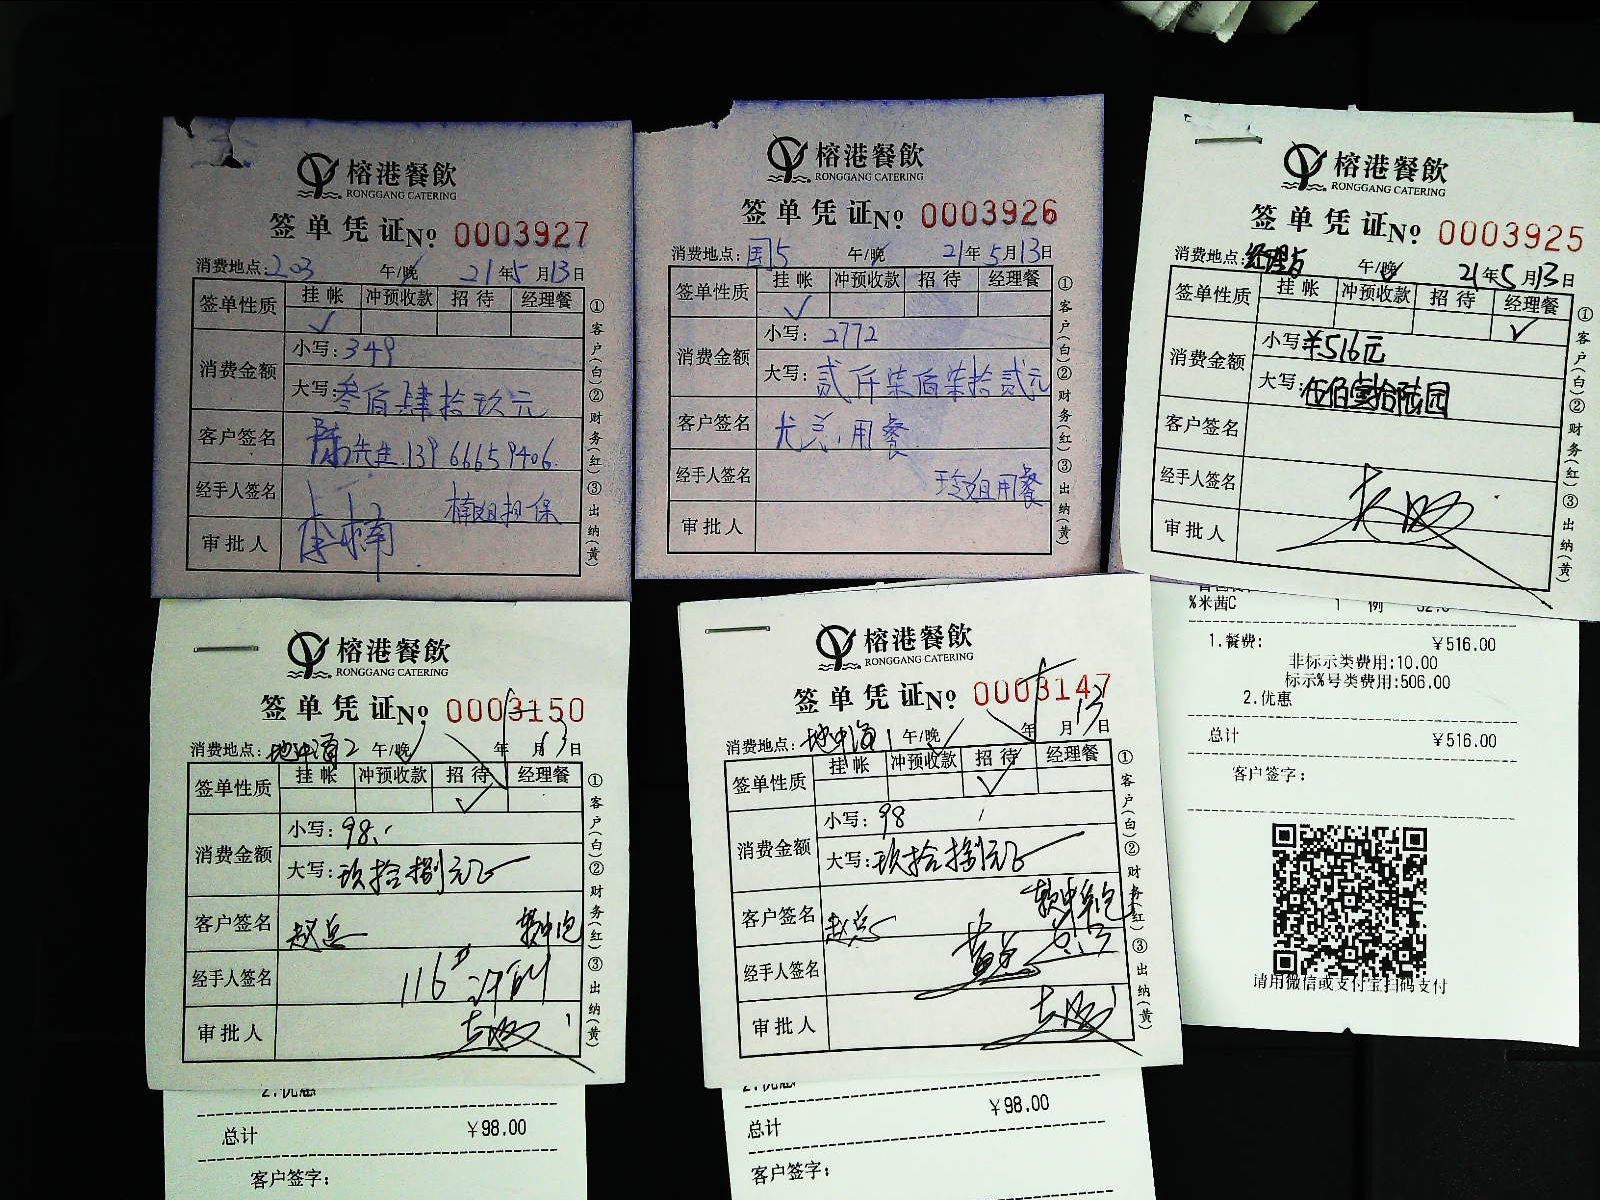 榕港餐飲
RONGGANG CATERING
签单凭证No. 0003927
消费地点:203 午/晚 21年5月13日
签单性质 挂帐 冲预收款 招待 经理餐
✓
消费金额 小写:349
大写:叁佰肆拾玖元
客户签名 陈先生.139 6665 9406.
经手人签名 楠姐担保
李楠
审批人
①客户(白)②财务(红)③出纳(黄)
榕港餐飲
RONGGANG CATERING
签单凭证No. 0003926
消费地点:国5 午/晚 21年5月13日
签单性质 挂帐 冲预收款 招待 经理餐
✓
消费金额 小写:2772
大写:贰仟柒佰柒拾贰元
客户签名 尤总.用餐.
经手人签名 玲姐用餐
审批人
①客户(白)②财务(红)③出纳(黄)
榕港餐飲
RONGGANG CATERING
签单凭证No. 0003925
消费地点:经理房 午/晚 21年5月13日
签单性质 挂帐 冲预收款 招待 经理餐
✓
消费金额 小写:¥516元
大写:伍佰壹拾陆园
客户签名
经手人签名
审批人
①客户(白)②财务(红)③出纳(黄)
%米茜C 1 例
1.餐费: ¥516.00
非标示类费用:10.00
标示%号类费用:506.00
2.优惠
总计 ¥516.00
客户签字:
请用微信或支付宝扫码支付
榕港餐飲
RONGGANG CATERING
签单凭证No. 0003150
消费地点:地中海2 午/晚 年 月13日
签单性质 挂帐 冲预收款 招待 经理餐
✓
消费金额 小写:98.
大写:玖拾捌元正
客户签名 赵总 软中包
经手人签名 116
审批人
①客户(白)②财务(红)③出纳(黄)
2.优惠
总计 ¥98.00
客户签字:
榕港餐飲
RONGGANG CATERING
签单凭证No. 0003147
消费地点:地中海1 午/晚 年 月13日
签单性质 挂帐 冲预收款 招待 经理餐
✓
消费金额 小写:98
大写:玖拾捌元正
客户签名 赵总 软中华包
经手人签名
审批人
①客户(白)②财务(红)③出纳(黄)
2.优惠
总计 ¥98.00
客户签字: